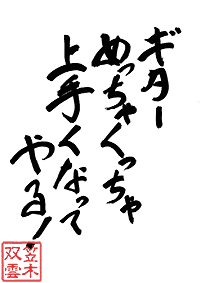 ギター
めっちゃくっちゃ
上手くなって
やる!
笠木
双雲